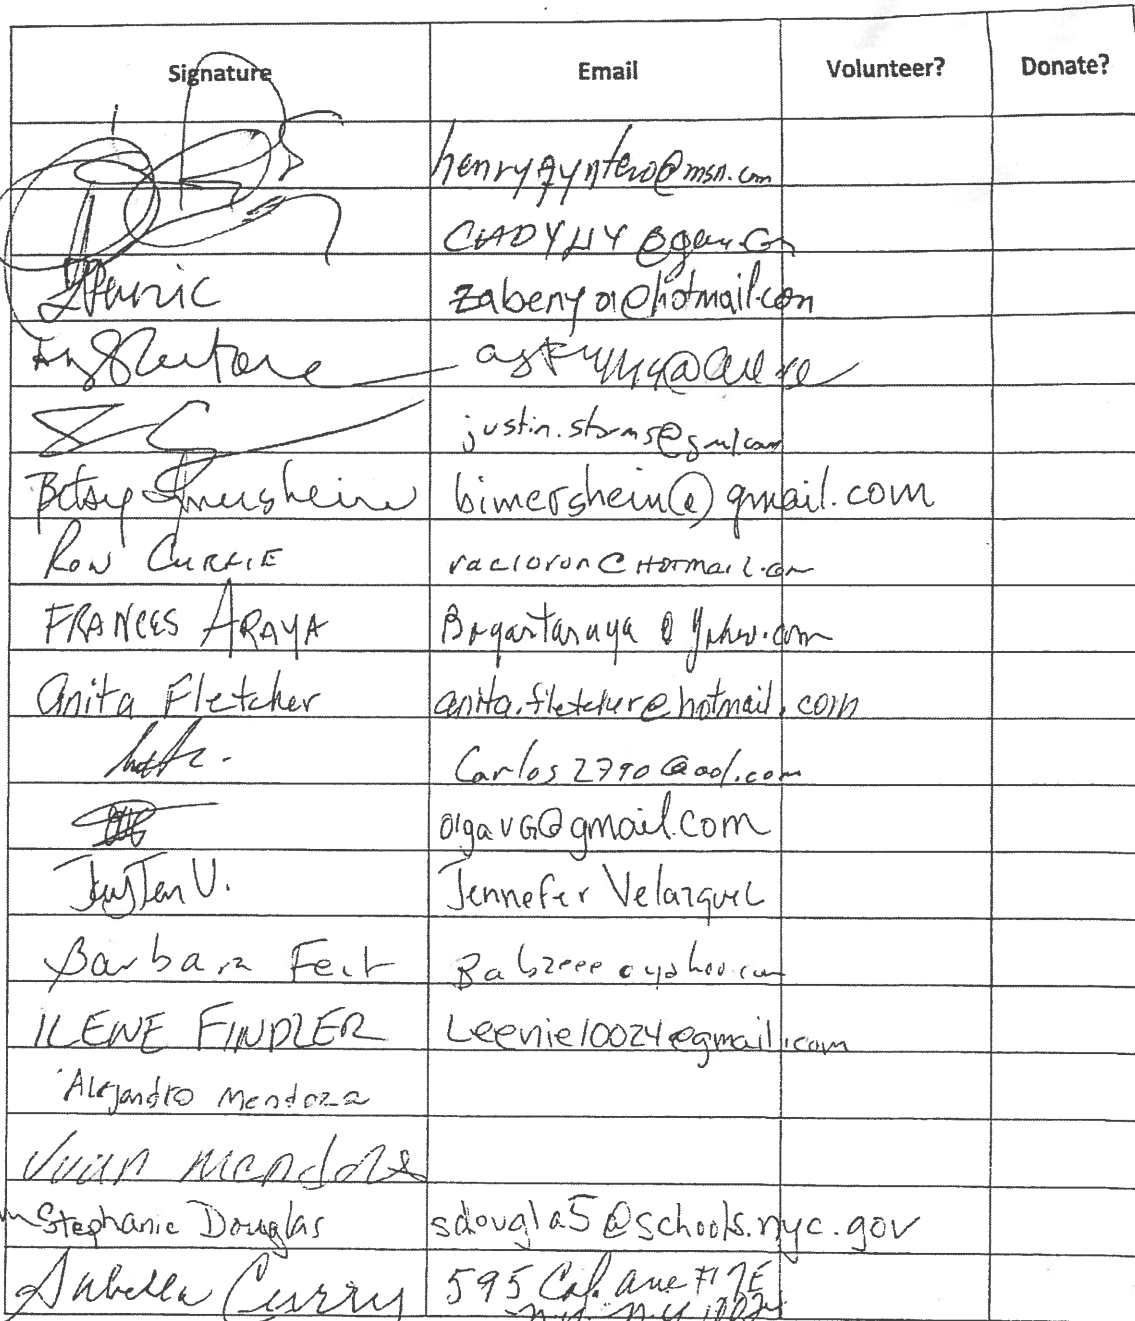 Signature Email Volunteer? Donate?
henryqyntero@msn.com
zabenya@hotmail.com
justin.storms@gmail.com
Betsy Imershein bimershein@gmail.com
RON CURRIE racloron@HOTMAIL.com
FRANCES ARAYA Bogartaraya@yahoo.com
Anita Fletcher anita.fletcher@hotmail.com
Carlos2790@aol.com
olgavG@gmail.com
V. Jennefer Velazquez
Barbara Feit Babzeee@yahoo.com
ILENE FINDLER Leenie10024@gmail.com
Alejandro Mendoza
Juan Mendoza
Stephanie Douglas sdougla5@schools.nyc.gov
Isabella Curry 595 Col. Ave #7E
N.Y. N.Y. 10024